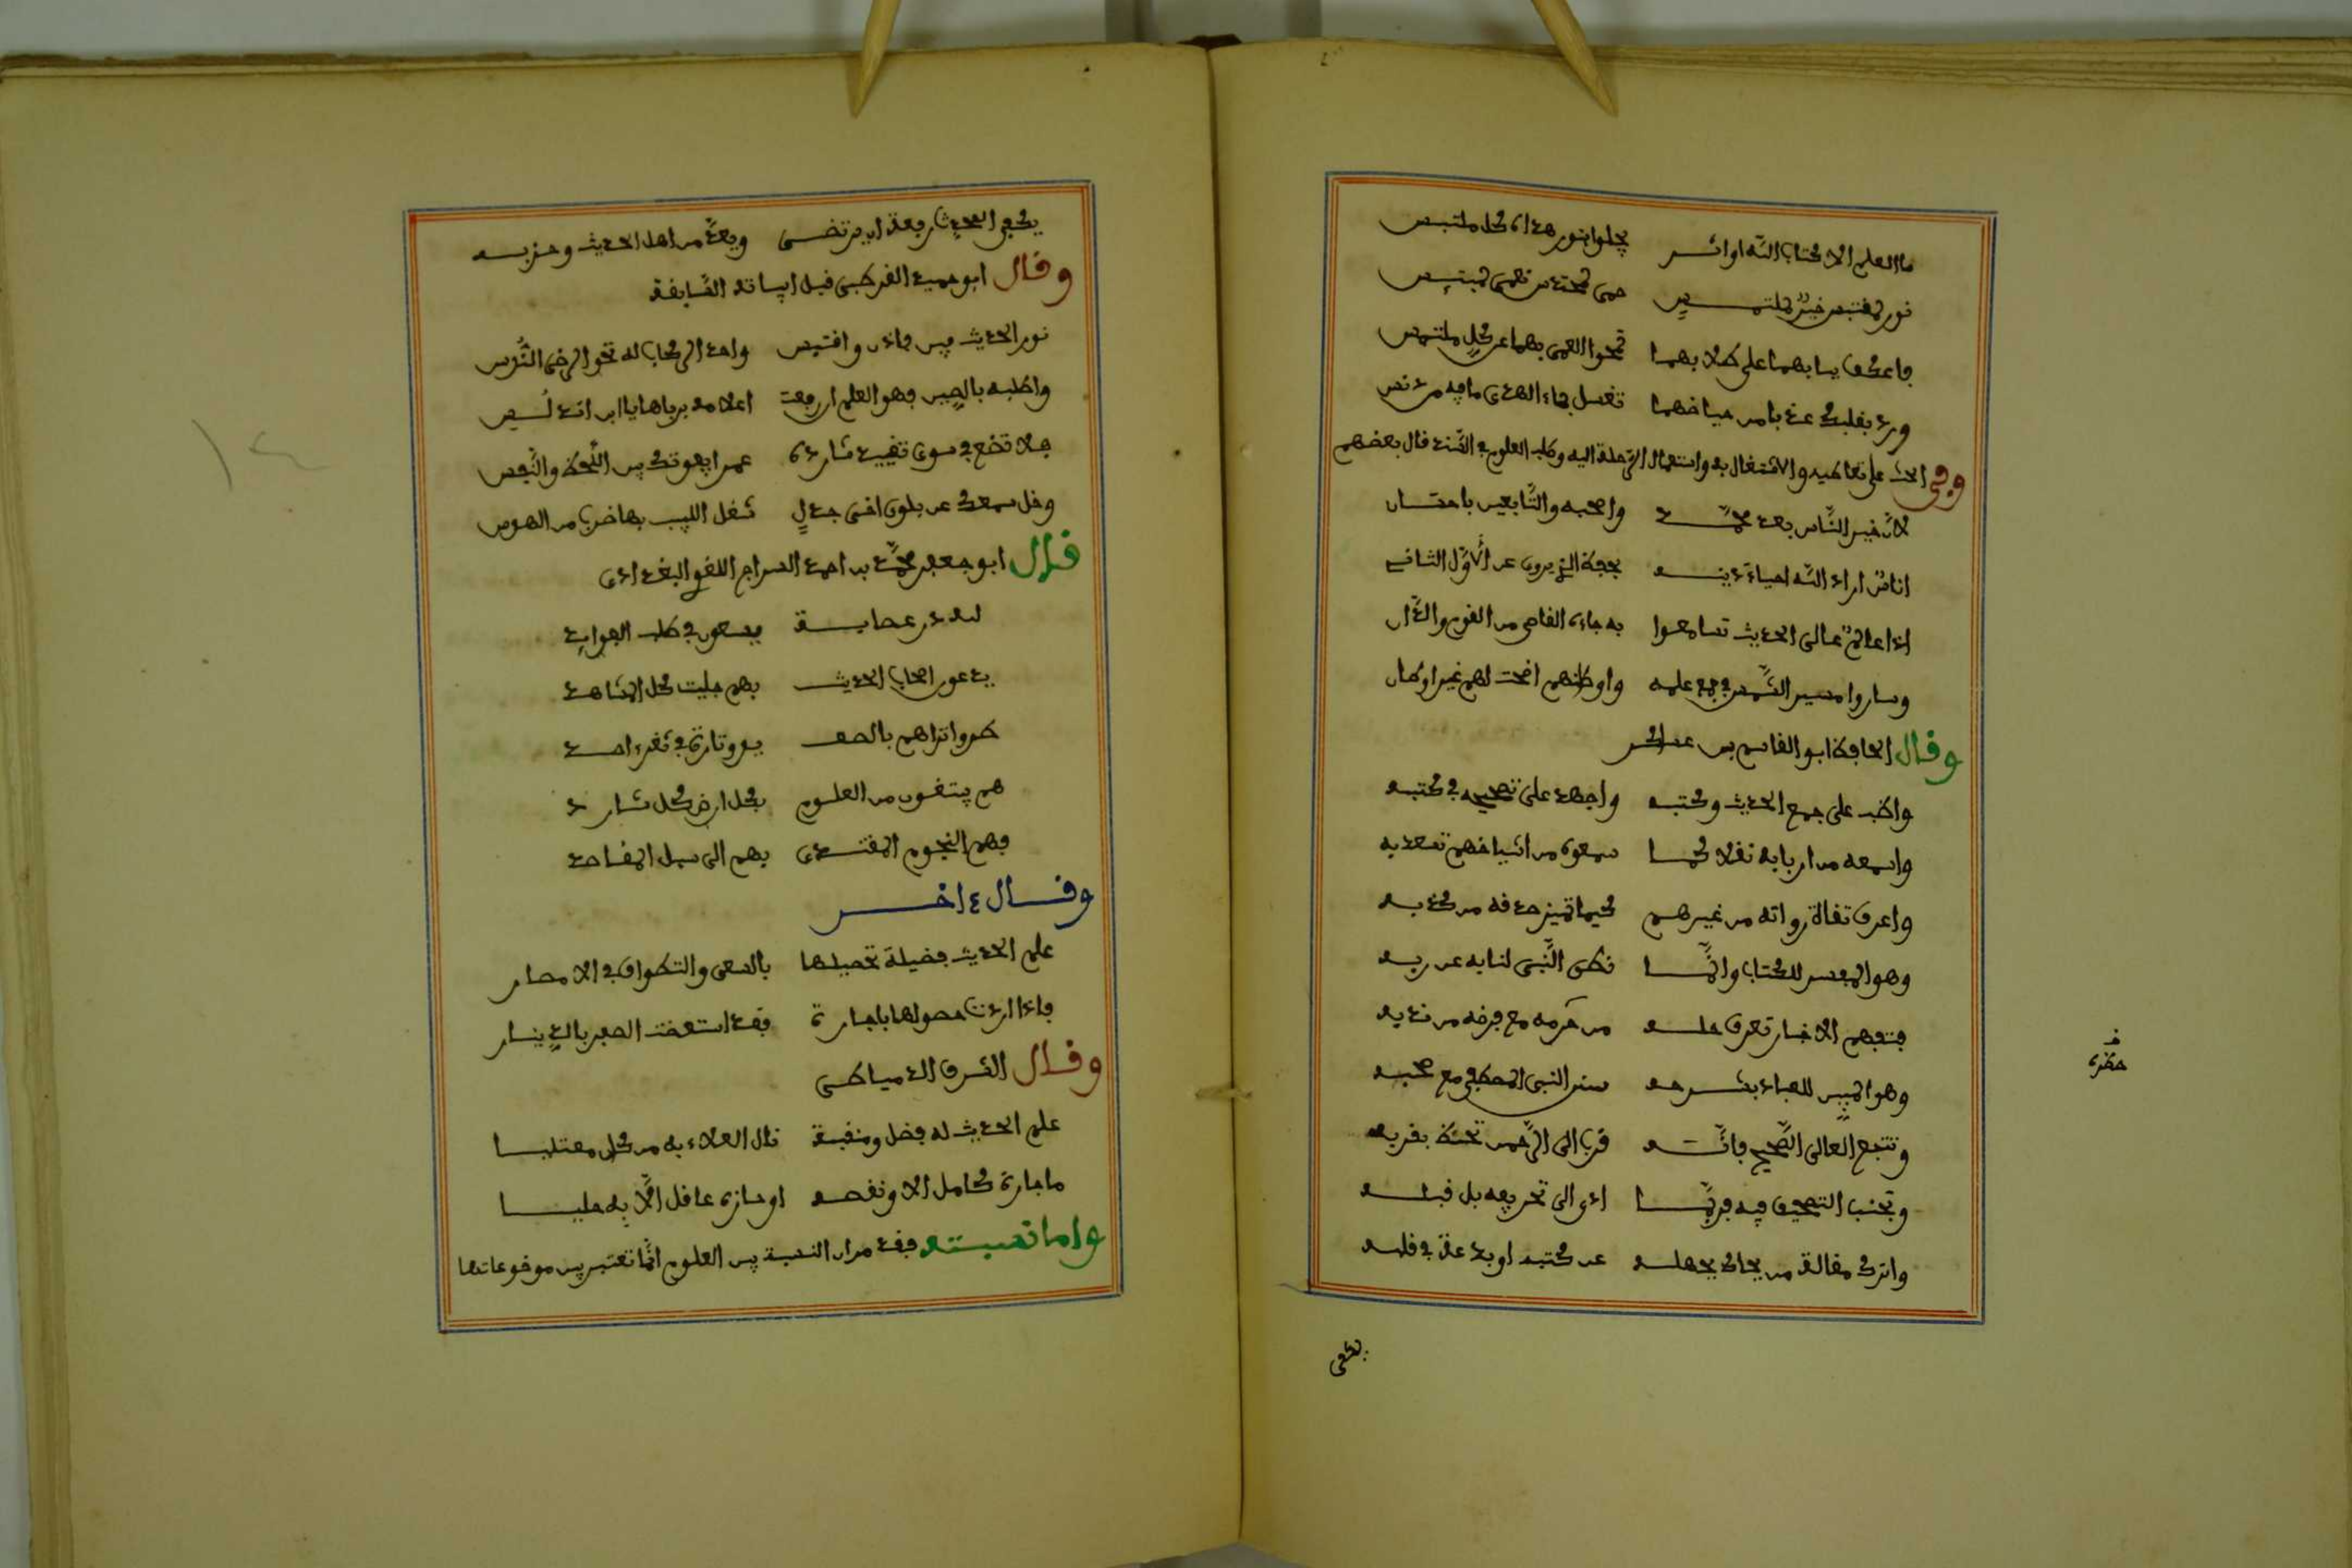 ما العلم الا كتاب الله او اثر يجلو بنور هداه كل ملتبس
نور لمقتبس خير لملتمس حمى لمحترس نعمى لمبتئس
فاعكف ببابهما على طلابهما تمحو العمى بهما عن كل ملتمس
ورد بقلبك عذبا من حياضهما تغسل بماء الهدى ما فيه من دنس
وفي الحث على تعاطيه والاشتغال به واستعمال الرحلة اليه وطلب العلو في السند قال بعضهم
لان خير الناس بعد محمد واصحبه والتابعين باحسان
اناس اراد الله احياء دينه بحفظ الذي يروي عن الاول الثاني
اذا عالم عالي الحديث تسامعوا به جاءه القاصي من القوم والدان
وساروا مسير الشمس في جمع علمه واوطانهم اضحت لهم غير اوطان
وقال الحافظ ابو القاسم بن عساكر
واظب على جمع الحديث وكتبه واجهد على تصحيحه في كتبه
واسمعه من اربابه نقلا كما سمعوه من اشياخهم تسعد به
واعرف ثقاة رواته من غيرهم كيما تميز صدقه من كذبه
وهو المفسر للكتاب وانما نطق النبي لنا به عن ربه
فتفهم الاخبار تعرف حله من حرمه مع فرضه من ندبه
وهو المبين للعباد بشرحه سنن النبي المصطفى مع صحبه
وتتبع العالي الصحيح فانه قربا الى الرحمن تحظ بقربه
وتجنب التصحيف فيه فربما ادى الى تحريفه بل قبله
واترك مقالة من لحاك بجهله عن كتبه او بدعة في قلبه
يكفي
يكفي الحديث رفعة ان يرتضى ويعد من اهل الحديث وحزبه
وقال ابو حميد القرطبي قبل ابياته السابقة
نور الحديث مبين فادن واقتبس واحد الركاب له نحو الرضى الندس
واطلبه بالصين فهو العلم ان رفعت اعلامه برباها يا ابن اندلس
فلا تضع في سوى تقييد شارده عمرا يفوتك بين اللحظ والنفس
وخل سمعك عن بلوى اخي جدل شغل اللبيب بها ضرب من الهوس
قال ابو جعفر محمد بن احمد السراج اللغوي البغدادي
لله در عصابة يسعون في طلب الفوايد
يدعون اصحاب الحديث بهم جليت كل المشاهد
طروا تراهم بالصعيد وتارة في ثغر امد
هم يبتغون من العلوم بكل ارض كل شارد
فهم النجوم المقتدى بهم الى سبل المقاصد
وقال ءاخر
علم الحديث فضيلة تحصيلها بالسعي والتطواف في الامصار
فاذا اردت حصولها باجازة فقد استعضت الصبر بالدينار
وقال الشرف الدمياطي
علم الحديث له فضل ومنقبة نال العلاء به من كل معتليا
ما جازه كامل الا ونقصه او حازه عاطل الا به حليا
واما نسبته فقد مر ان النسبة بين العلوم انما تعتبر بين موضوعاتها